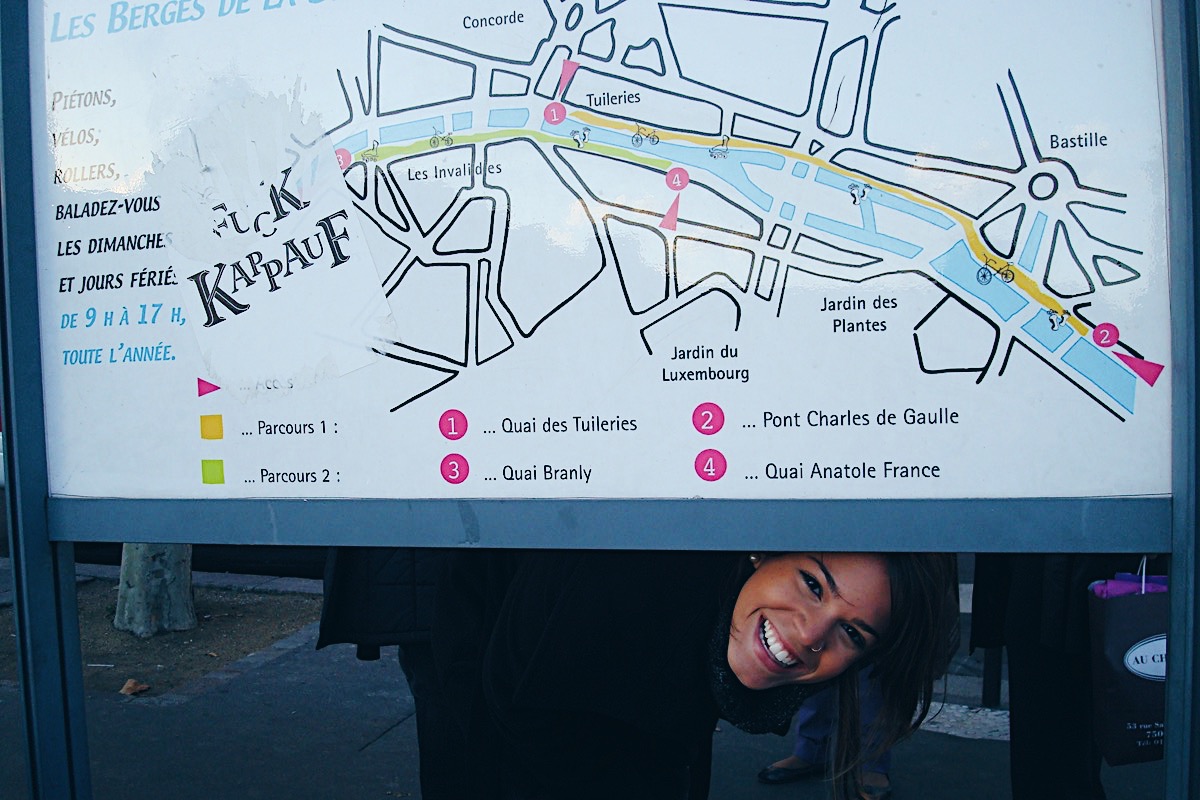 LES BERGES DE LA
PIÉTONS,
VÉLOS,
ROLLERS,
BALADEZ-VOUS
LES DIMANCHES
ET JOURS FÉRIÉS
DE 9 H À 17 H,
TOUTE L'ANNÉE.
FUCK
KAPPAUF
Concorde
Tuileries
1
Bastille
3
Les Invalides
4
Jardin des
Plantes
2
Jardin du
Luxembourg
... Accès
... Parcours 1 :
1 ... Quai des Tuileries
2 ... Pont Charles de Gaulle
... Parcours 2 :
3 ... Quai Branly
4 ... Quai Anatole France
AU CH